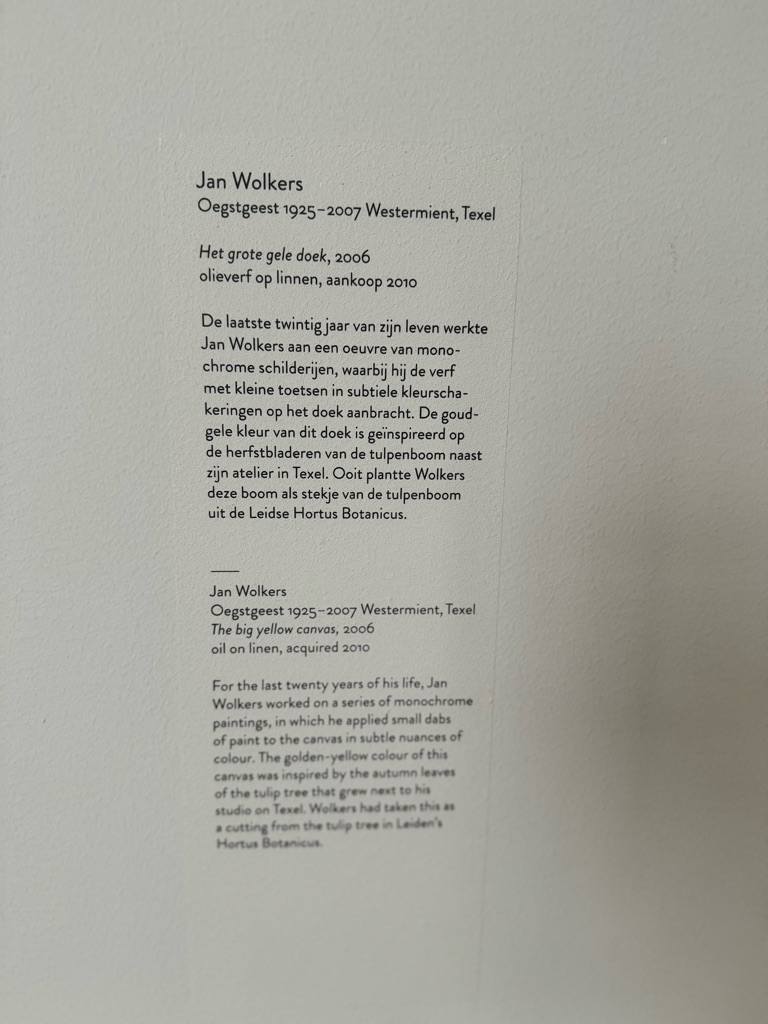 Jan Wolkers
Oegstgeest 1925–2007 Westermient, Texel
Het grote gele doek, 2006
olieverf op linnen, aankoop 2010
De laatste twintig jaar van zijn leven werkte
Jan Wolkers aan een oeuvre van mono-
chrome schilderijen, waarbij hij de verf
met kleine toetsen in subtiele kleurscha-
keringen op het doek aanbracht. De goud-
gele kleur van dit doek is geïnspireerd op
de herfstbladeren van de tulpenboom naast
zijn atelier in Texel. Ooit plantte Wolkers
deze boom als stekje van de tulpenboom
uit de Leidse Hortus Botanicus.
Jan Wolkers
Oegstgeest 1925–2007 Westermient, Texel
The big yellow canvas, 2006
oil on linen, acquired 2010
For the last twenty years of his life, Jan
Wolkers worked on a series of monochrome
paintings, in which he applied small dabs
of paint to the canvas in subtle nuances of
colour. The golden-yellow colour of this
canvas was inspired by the autumn leaves
of the tulip tree that grew next to his
studio on Texel. Wolkers had taken this as
a cutting from the tulip tree in Leiden's
Hortus Botanicus.